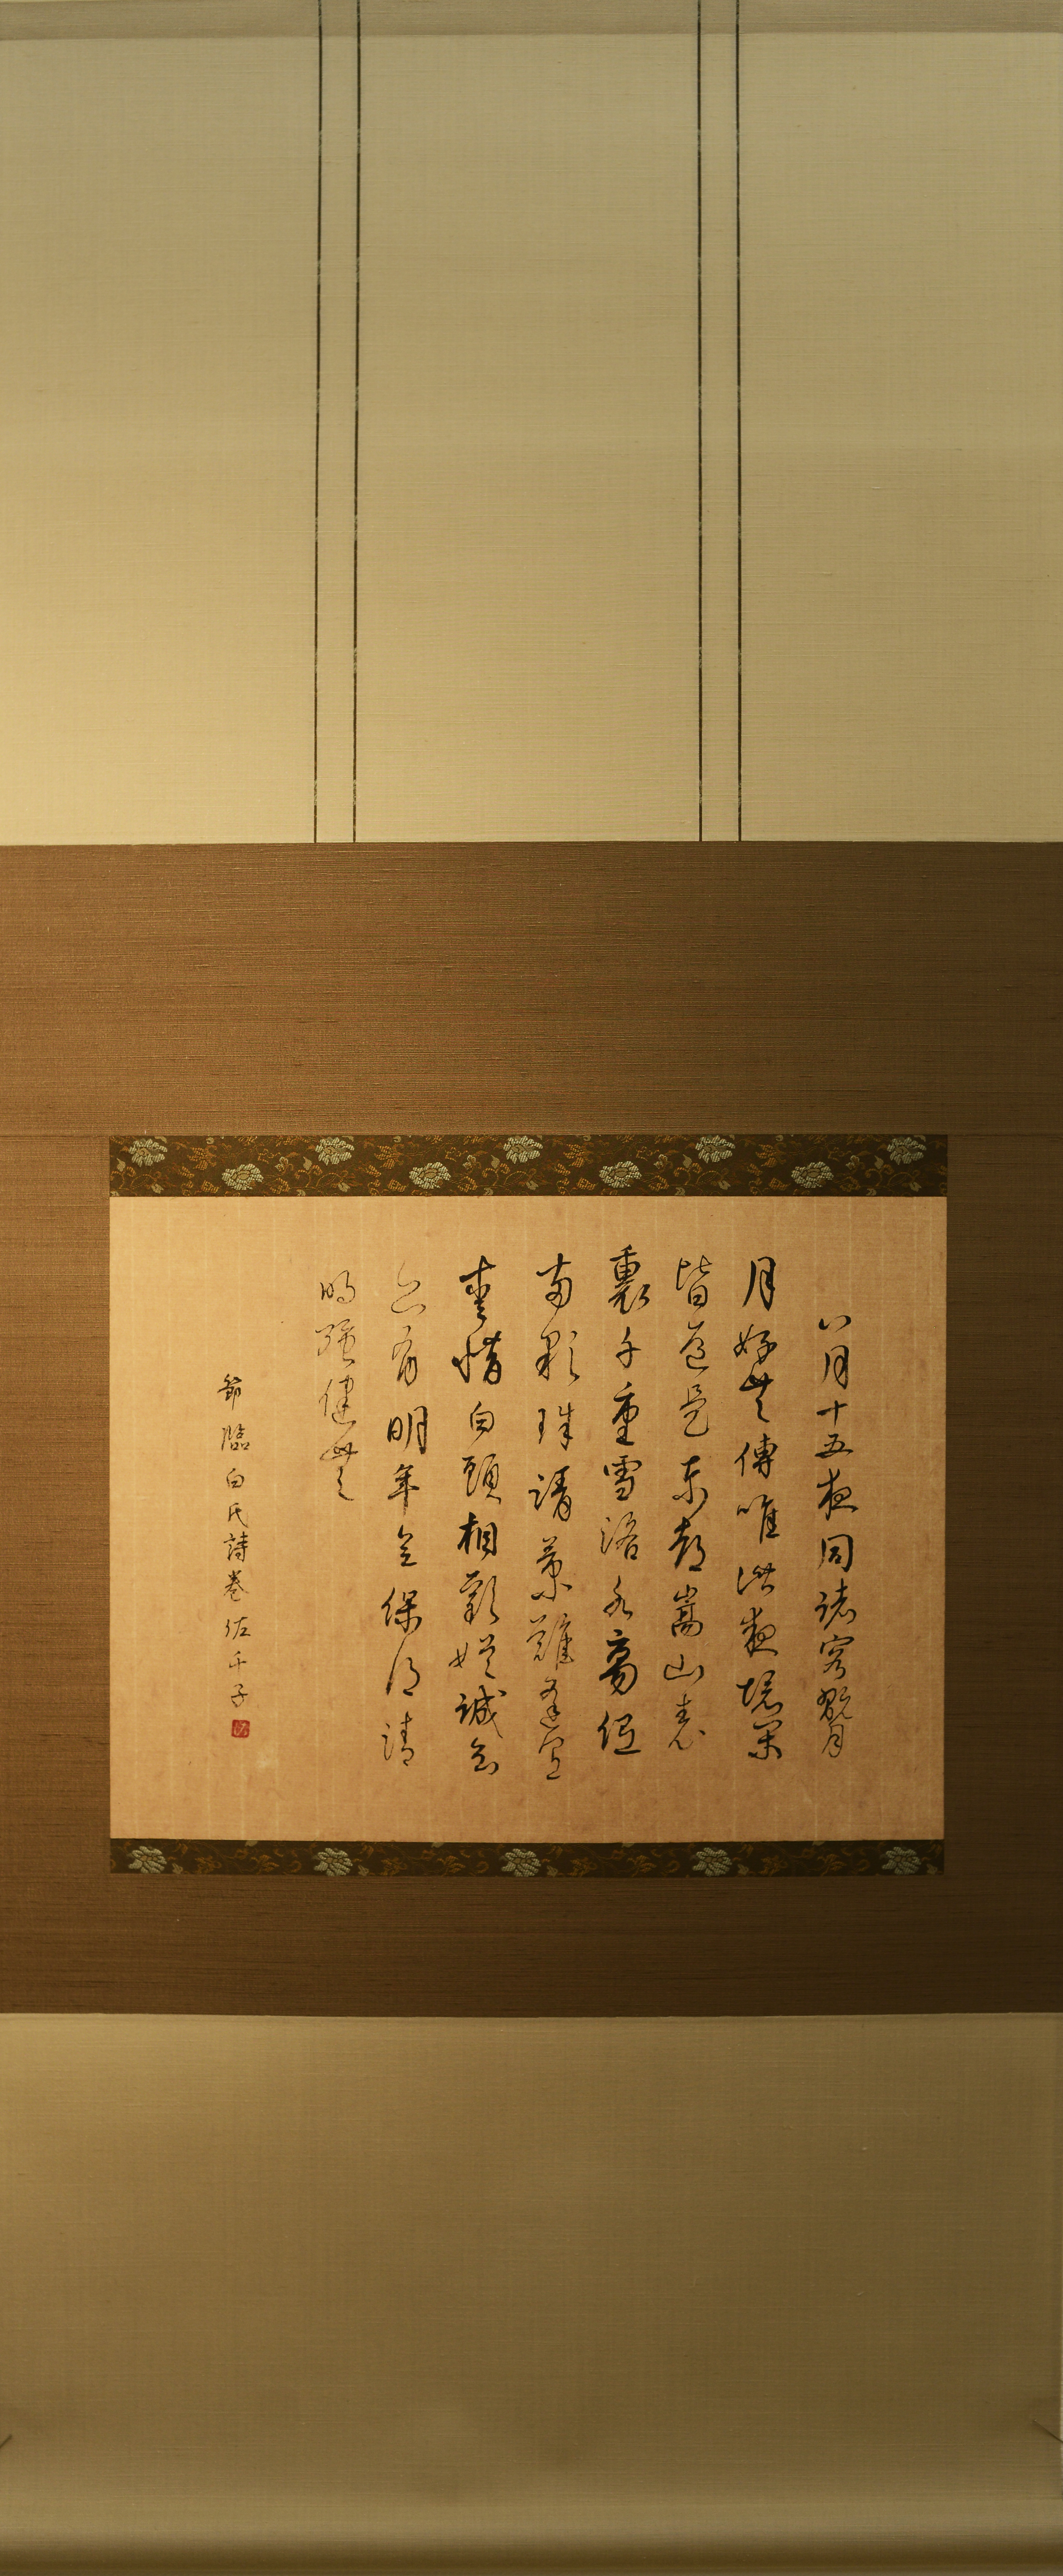 八月十五夜同諸客翫月
月好共傳唯此夜境閑
皆道是東都嵩山表
裏千重雪洛水高低
兩顆珠清景難逢宜
愛惜白頭相歡娯誠知
亦有明年会保得清
明強健無
節臨白氏詩巻佐千子